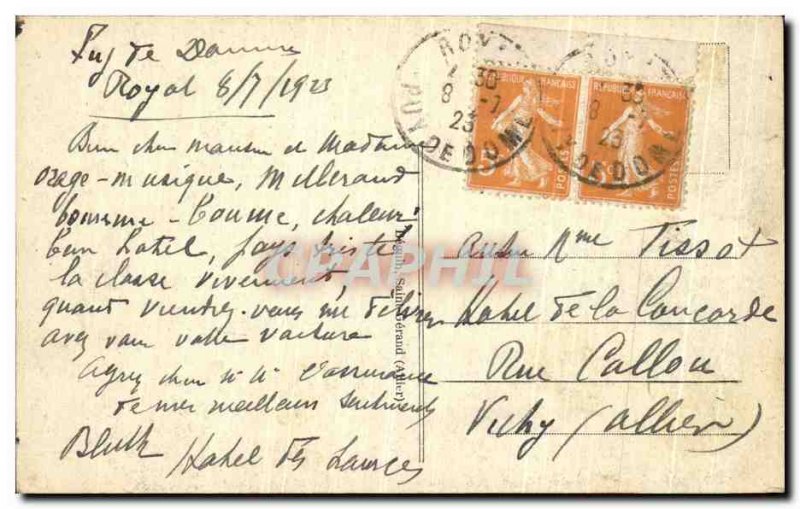 Puy de Dome
Royat 8/7/1923
Bien cher monsieur et Madame
orage - musique, Millerand
boume - boume, chaleur
bon hotel, pays triste
la classe vivement,
quand viendrez-vous me
avec votre voiture
Agréez cher M. M. l'assurance
de mes meilleurs sentiments
Hotel des Sources
ROYAT
PUY DE DOME
8 -7
23
REPUBLIQUE FRANÇAISE
POSTES
ROYAT
PUY DE DOME
8
23
REPUBLIQUE FRANÇAISE
POSTES
Saint-Gérand (Allier)
CPAPHIL
Mme Tissot
Hotel de la Concorde
Rue Callou
Vichy (Allier)